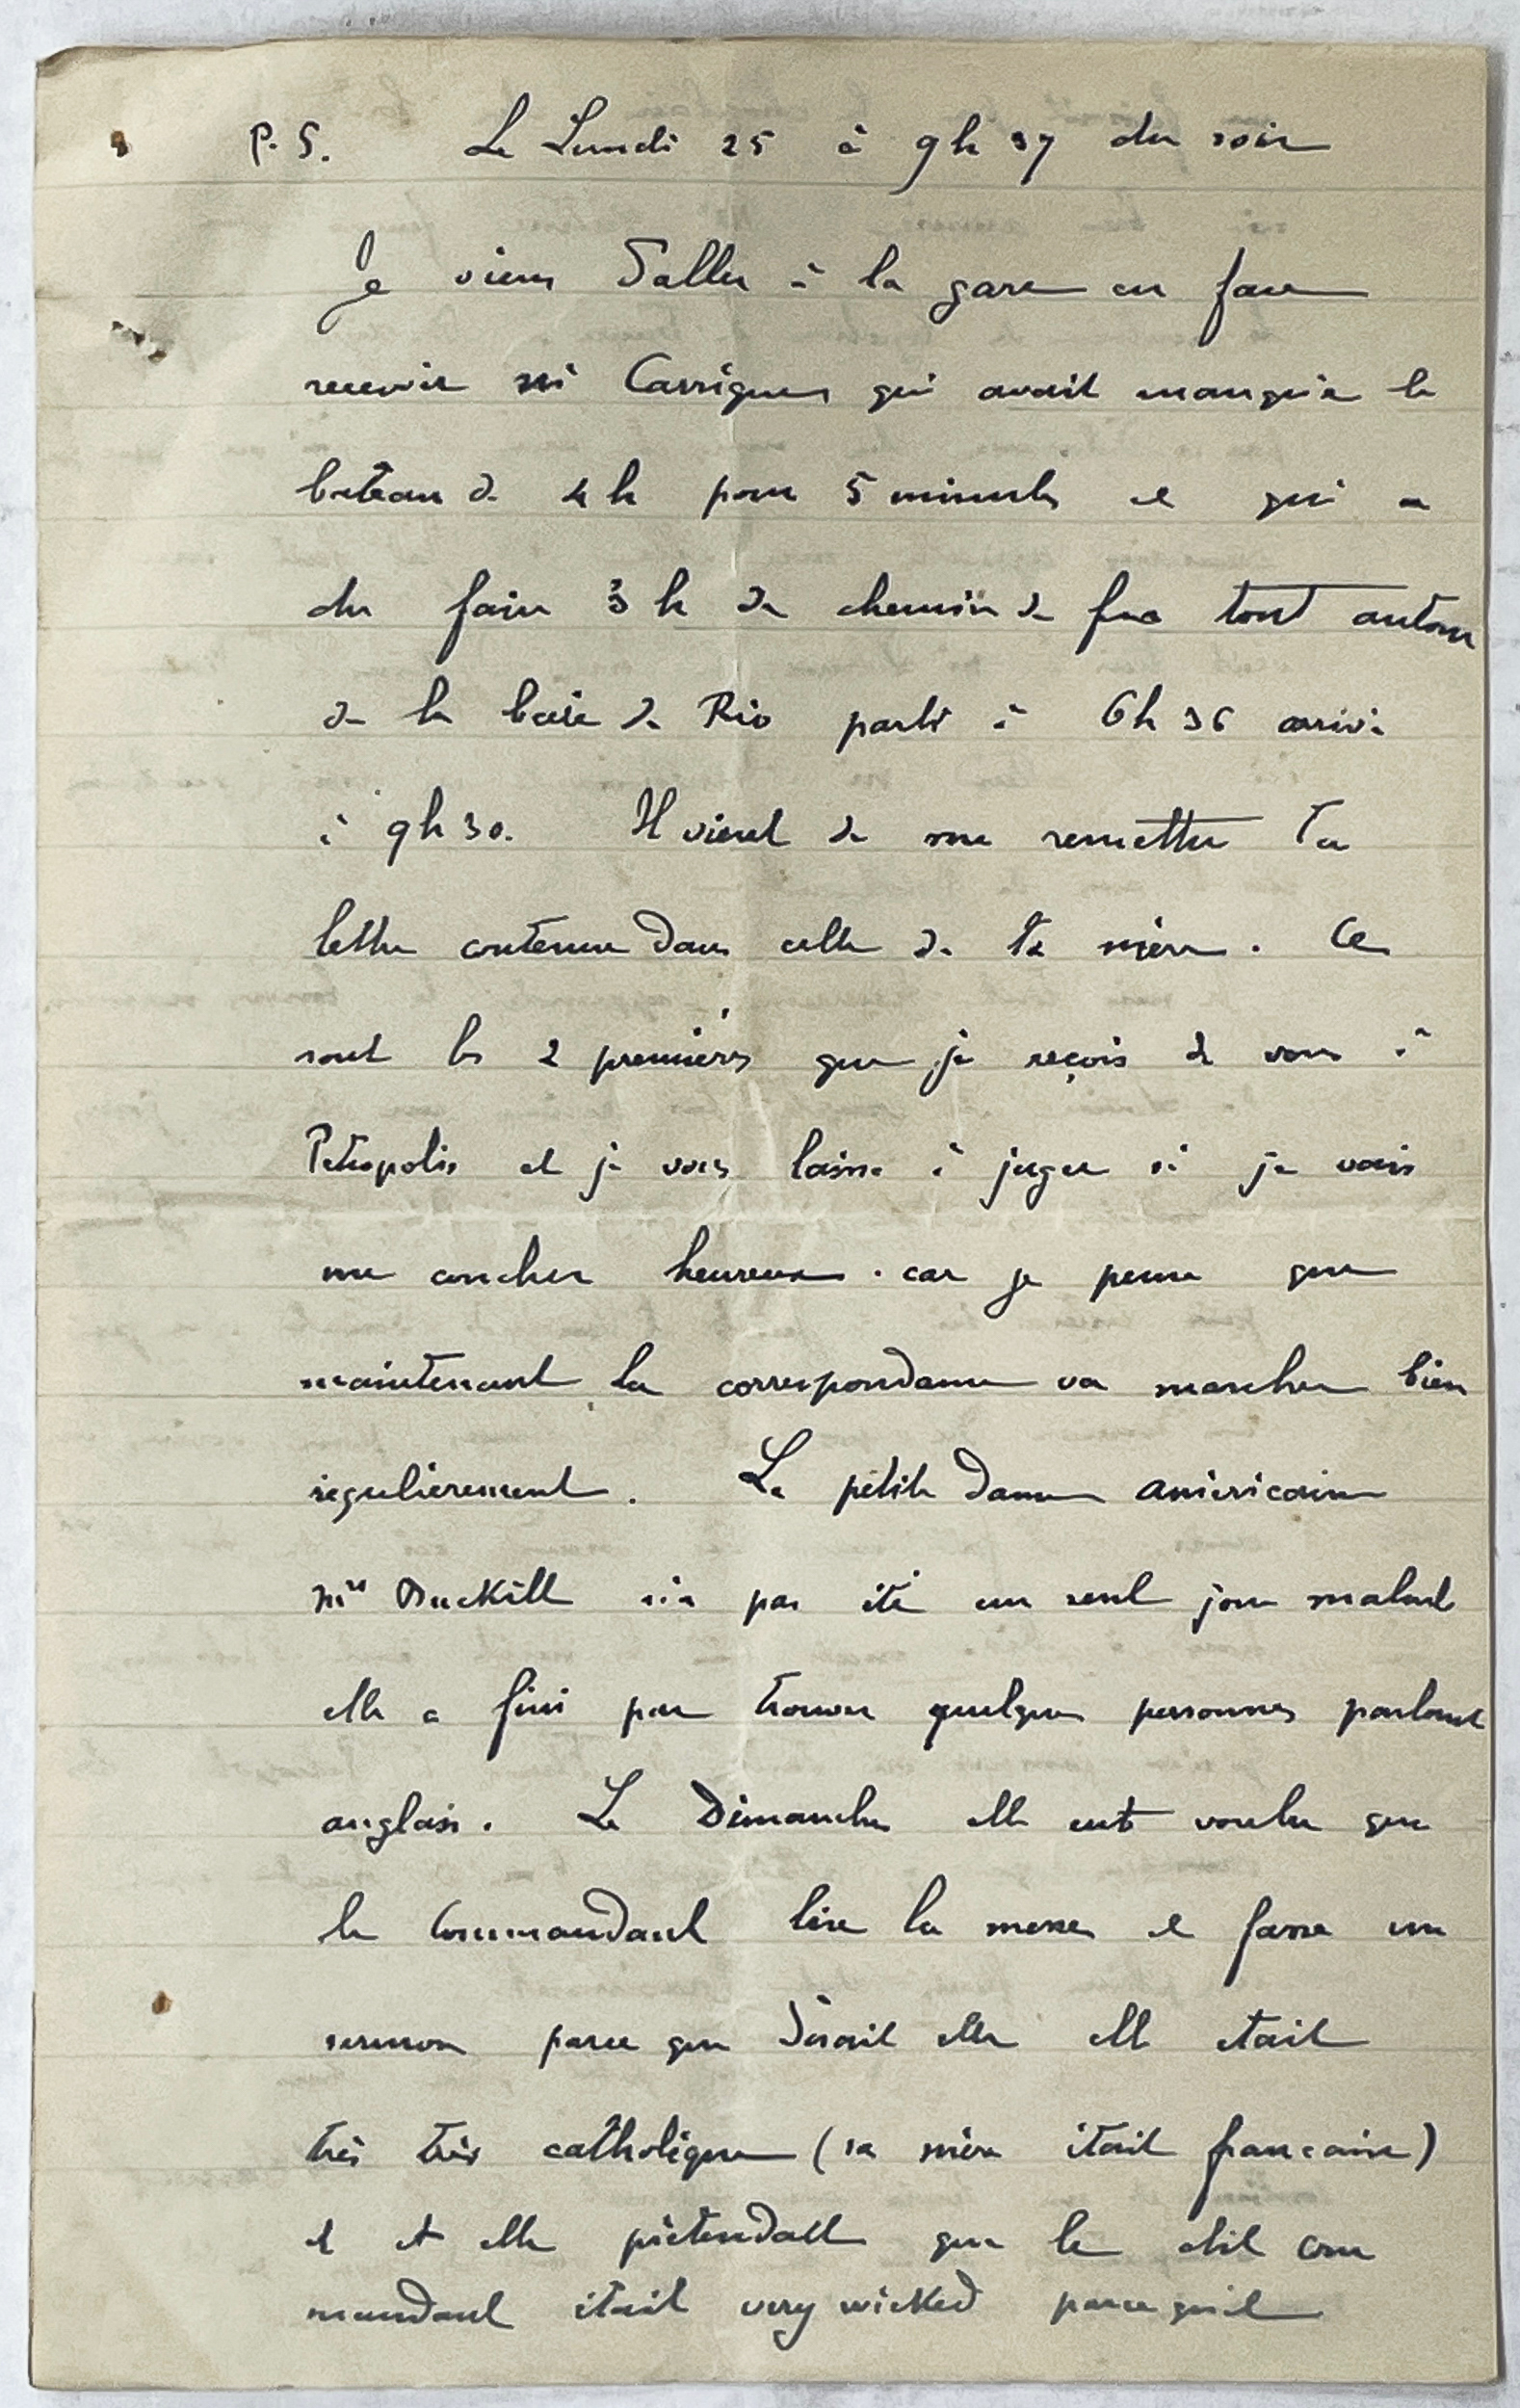 P.S. Le Lundi 25 à 9h 37 du soir
Je viens d'aller à la gare en face
recevoir Mr Carrigues qui avait manqué le
bateau de 4h pour 5 minutes et qui a
du faire 3h de chemin de fer tout autour
de la baie de Rio parti à 6h 36 arrivé
à 9h30. Il vient de me remettre ta
lettre contenue dans celle de ta mère. Ce
sont les 2 premières que je reçois de vous à
Petropolis et je vous laisse à juger si je vais
me coucher heureux. car je pense que
maintenant la correspondance va marcher bien
regulierement. La petite dame américaine
Mrs Duckill n'a pas été un seul jour malade
elle a fini par trouver quelques personnes parlant
anglais. Le Dimanche elle eut voulu que
le Commandant lise la messe et fasse un
sermon parce que disait elle elle etait
très très catholique (sa mère était francaise)
et et elle prétendait que le dit com
mandant était very wicked parce qu'il